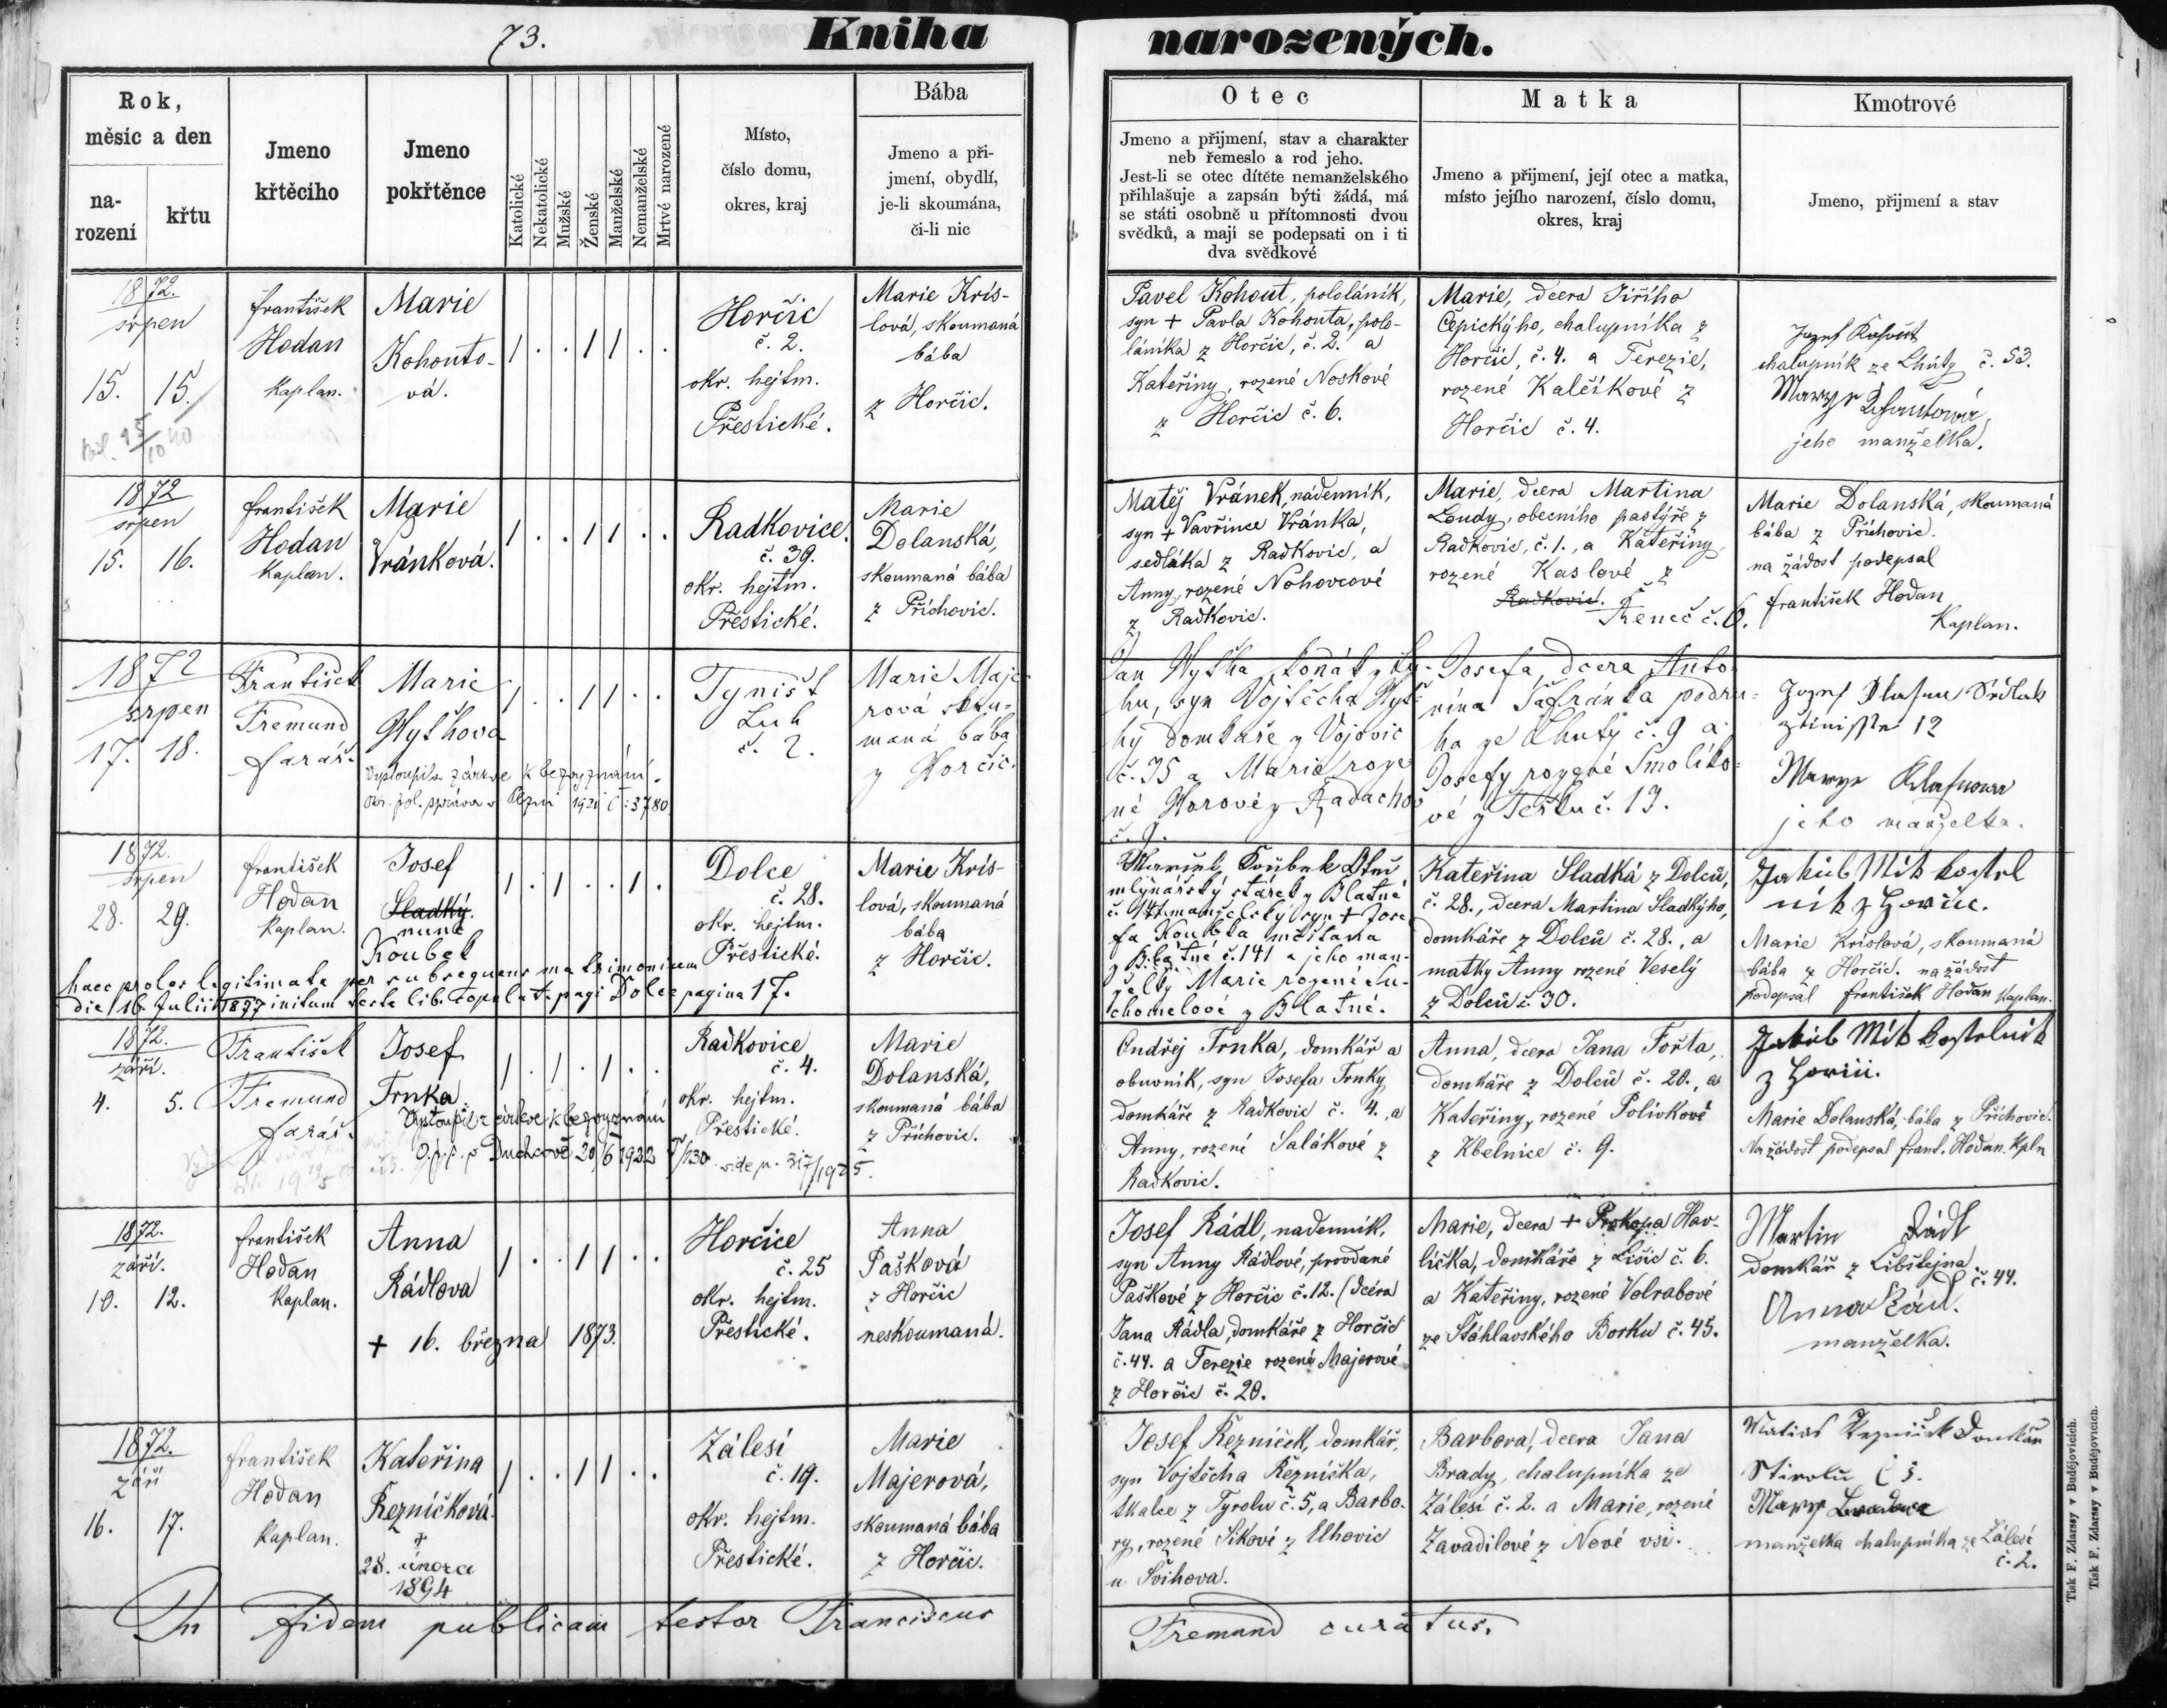 73.
Kniha
narozených.
Rok,
měsíc a den
na-
rození
křtu
Jmeno
křtěcího
Jmeno
pokřtěnce
Katolické
Nekatolické
Mužské
Ženské
Manželské
Nemanželské
Mrtvé narozené
Místo,
číslo domu,
okres, kraj
Bába
Jmeno a při-
jmení, obydlí,
je-li skoumána,
či-li nic
Otec
Jmeno a přijmení, stav a charakter
neb řemeslo a rod jeho.
Jest-li se otec dítěte nemanželského
přihlašuje a zapsán býti žádá, má
se státi osobně u přítomnosti dvou
svědků, a mají se podepsati on i ti
dva svědkové
Matka
Jmeno a přijmení, její otec a matka,
místo jejího narození, číslo domu,
okres, kraj
Kmotrové
Jmeno, přijmení a stav
1872.
srpen
15. 15.
František
Hodan
Kaplan.
Marie
Kohouto-
vá.
1 . . 1 1 . .
Horčic
č. 2.
okr. hejtm.
Přestické.
Marie Kris-
lová, skoumaná
bába
z Horčic.
Pavel Kohout, pololáník,
syn + Pavla Kohouta, polo-
láníka z Horčic, č. 2. a
Kateřiny, rozené Noskové
z Horčic č. 6.
Marie, dcera Jiřího
Čepického, chalupníka z
Horčic, č. 4. a Terezie,
rozené Kalčíkové z
Horčic č. 4.
Jozef Kohout
chalupník ze Lhůty č. 53.
jeho manželka.
1872
srpen
15. 16.
František
Hodan
Kaplan.
Marie
Vránková.
1 . . 1 1 . .
Radkovice.
č. 39.
okr. hejtm.
Přestické.
Marie
Dolanská,
skoumaná bába
z Příchovic.
Matěj Vránek, nádenník,
syn + Vavřince Vránka,
sedláka z Radkovic, a
Anny, rozené Nohovcové
z Radkovic.
Marie, dcera Martina
Loudy, obecního pastýře z
Radkovic, č. 1., a Kateřiny
rozené Kaslové z
Radkovic.
Řeneč č. 6.
Marie Dolanská, skoumaná
bába z Příchovic.
na žádost podepsal
František Hodan
Kaplan.
1872
srpen
17. 18.
František
Fremund
farář.
Marie
Hythová
Vystoupila z církve k bezvyznání.
Okr. pol. správa v Plzni 1921 č: 3780.
1 . . 1 1 . .
Týništ
Luh
č. 2.
Marie Maje-
rová skou-
maná bába
z Horčic.
hu, syn Vojtěcha
domkáře z Vojovic
č. 35 a Marie roze-
né Horové z Radacho
Josefa dcera Anto-
nína Šafránka podru-
ha ze Lhuty č. 9 a
Josefy rozené Smolíko-
vé z Těšku č. 13.
12
jeho manželka.
1872.
srpen
28. 29.
František
Hodan
Kaplan.
Josef
Sladký.
nunc
Koubek
haec proles legitimata per subsequens matrimonium
die 16. Julii 1877 initum teste lib. copulat. pagi Dolce pagina 17.
1 . 1 . . 1 .
Dolce
č. 28.
okr. hejtm.
Přestické.
Marie Kris-
lová, skoumaná
bába
z Horčic.
mlynářský stárek z Blatné
č. 141 manželský syn + Jose-
fa Koubka měšťana
z Blatné č. 141 a jeho man-
želky Marie rozené Su-
chomelové z Blatné.
Kateřina Sladká z Dolců,
č. 28., dcera Martina Sladkýho,
domkáře z Dolců č. 28., a
matky Anny rozené Veselý
z Dolců č. 30.
Jakub Míšk kostel
ník z Horčic.
Marie Krislová, skoumaná
bába z Horčic. na žádost
podepsal František Hodan Kaplan.
1872.
září.
4. 5.
František
Fremund
farář.
Josef
Trnka.
Vystoupil z církve k bezvyznání
O. p. s. v Duchcově 20/6 1922 č/130. vide p. 317/1925.
1 . 1 . 1 . .
Radkovice
č. 4.
okr. hejtm.
Přestické.
Marie
Dolanská,
skoumaná bába
z Příchovic.
Ondřej Trnka, domkář a
obuvník, syn Josefa Trnky
domkáře z Radkovic č. 4., a
Anny, rozené Salákové z
Radkovic.
Anna, dcera Jana Fořta,
domkáře z Dolců č. 20., a
Kateřiny, rozené Polívkové
z Kbelnice č. 9.
Jakub Míšk kostelník
z Horčic.
Marie Dolanská, bába z Příchovic.
Na žádost podepsal Frant. Hodan. Kpln
1872.
září.
10. 12.
František
Hodan
Kaplan.
Anna
Rádlova
+ 16. března 1873.
1 . . 1 1 . .
Horčice
č. 25
okr. hejtm.
Přestické.
Anna
Pašková
z Horčic
neskoumaná.
Josef Rádl, nadenník,
syn Anny Rádlové, provdané
Paškové z Horčic č. 12. (dcera
Jana Rádla, domkáře z Horčic
č. 44. a Terezie rozené Majerové
z Horčic č. 20.
Marie, dcera + Prokopa Hav-
líčka, domkáře z Lišic č. 6.
a Kateřiny, rozené Volrabové
ze Štáhlavského Borku č. 45.
Martin Rádl
domkář z Libštejna
č. 44.
Anna Rádl.
manželka.
1872.
září
16. 17.
František
Hodan
Kaplan.
Kateřina
Řezníčková.
+
28. února
1894
1 . . 1 1 . .
Zálesí
č. 19.
okr. hejtm.
Přestické.
Marie
Majerová,
skoumaná bába
z Horčic.
Josef Řezníček, domkář,
syn Vojtěcha Řezníčka,
tkalce z Tyrolu č. 5, a Barbo-
ry, rozené Sikové z Elhovic
u Švihova.
Barbora, dcera Jana
Brady, chalupníka ze
Zálesí č. 2. a Marie, rozené
Zavadilové z Nové vsi.
Matias Řezníček domkář
manželka chalupníka ze Zálesí
č. 2.
In fidem publicam testor Franciscus
Fremund curatus.
Tisk F. Zdarssy v Budějovicích.
Tisk F. Zdarssy v Budějovicích.